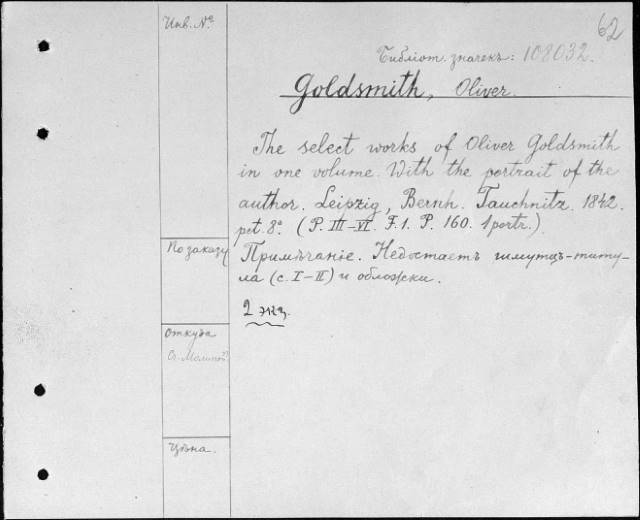 62
Инв. №
Библіот. значекъ: 108032.
Goldsmith, Oliver.
The select works of Oliver Goldsmith
in one volume. With the portrait of the
author. Leipzig, Bernh. Tauchnitz. 1842.
pet. 8°. (P. III–VI. F. 1. P. 160. 1 portr.).
По заказу
Примѣчаніе. Недостаетъ шмутцъ-титу-
ла (с. I–II) и обложки.
2 экз.
Откуда
Цѣна.